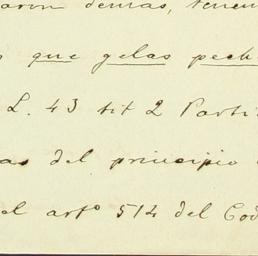 aron demas, tenem
que gelas pech
L. 43 tit 2 Parti
as del principio
el artº 514 del Cod